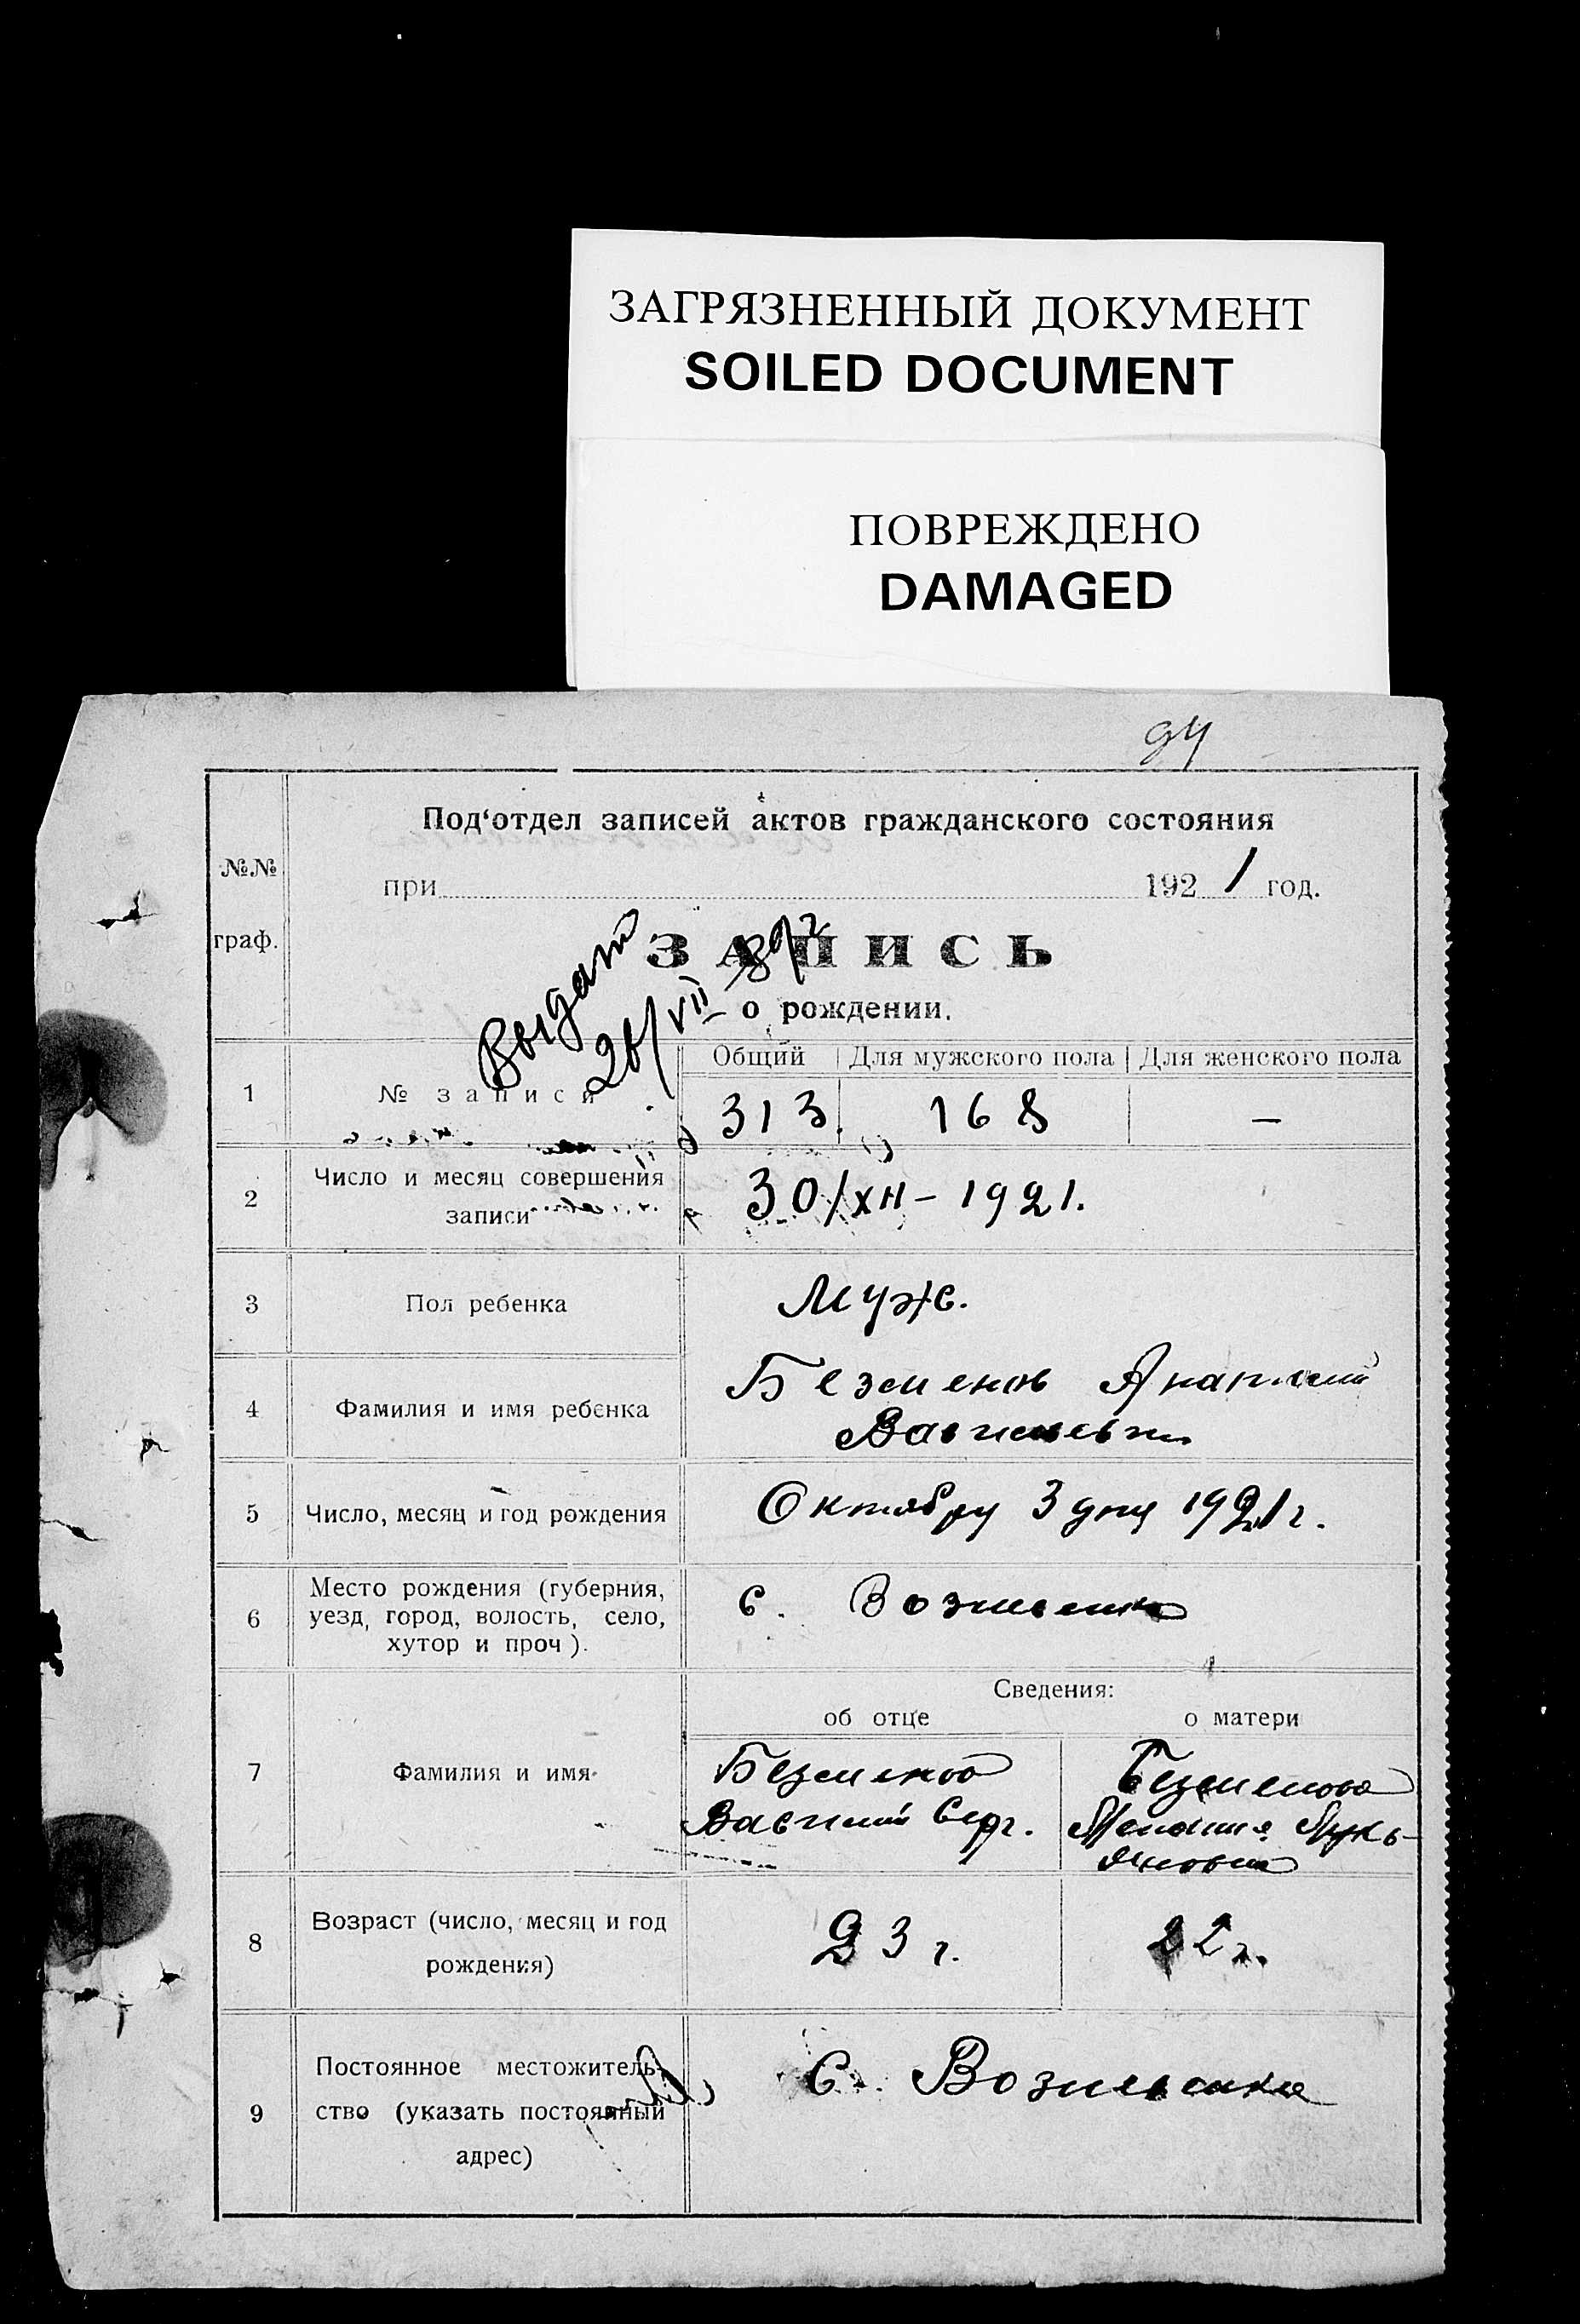 ЗАГРЯЗНЕННЫЙ ДОКУМЕНТ
SOILED DOCUMENT
ПОВРЕЖДЕНО
DAMAGED
94
Под‘отдел записей актов гражданского состояния
№№ граф.
при 1921 год.
ЗАПИСЬ
о рождении.
Выдан
26/VII
Общий Для мужского пола Для женского пола
1 № записи 313. 168 —
2 Число и месяц совершения
записи 30/XII – 1921.
3 Пол ребенка Муж.
4 Фамилия и имя ребенка Безменов Анатолий
Васильевич
5 Число, месяц и год рождения Октябру 3 дня 1921 г.
6 Место рождения (губерния,
уезд, город, волость, село,
хутор и проч). с.
Сведения:
об отце о матери
7 Фамилия и имя Безменов Безменова
Василий Серг. Лукь-
яновна
8 Возраст (число, месяц и год
рождения) 23 г. 22 г.
9 Постоянное местожитель-
ство (указать постоянный
адрес) С.